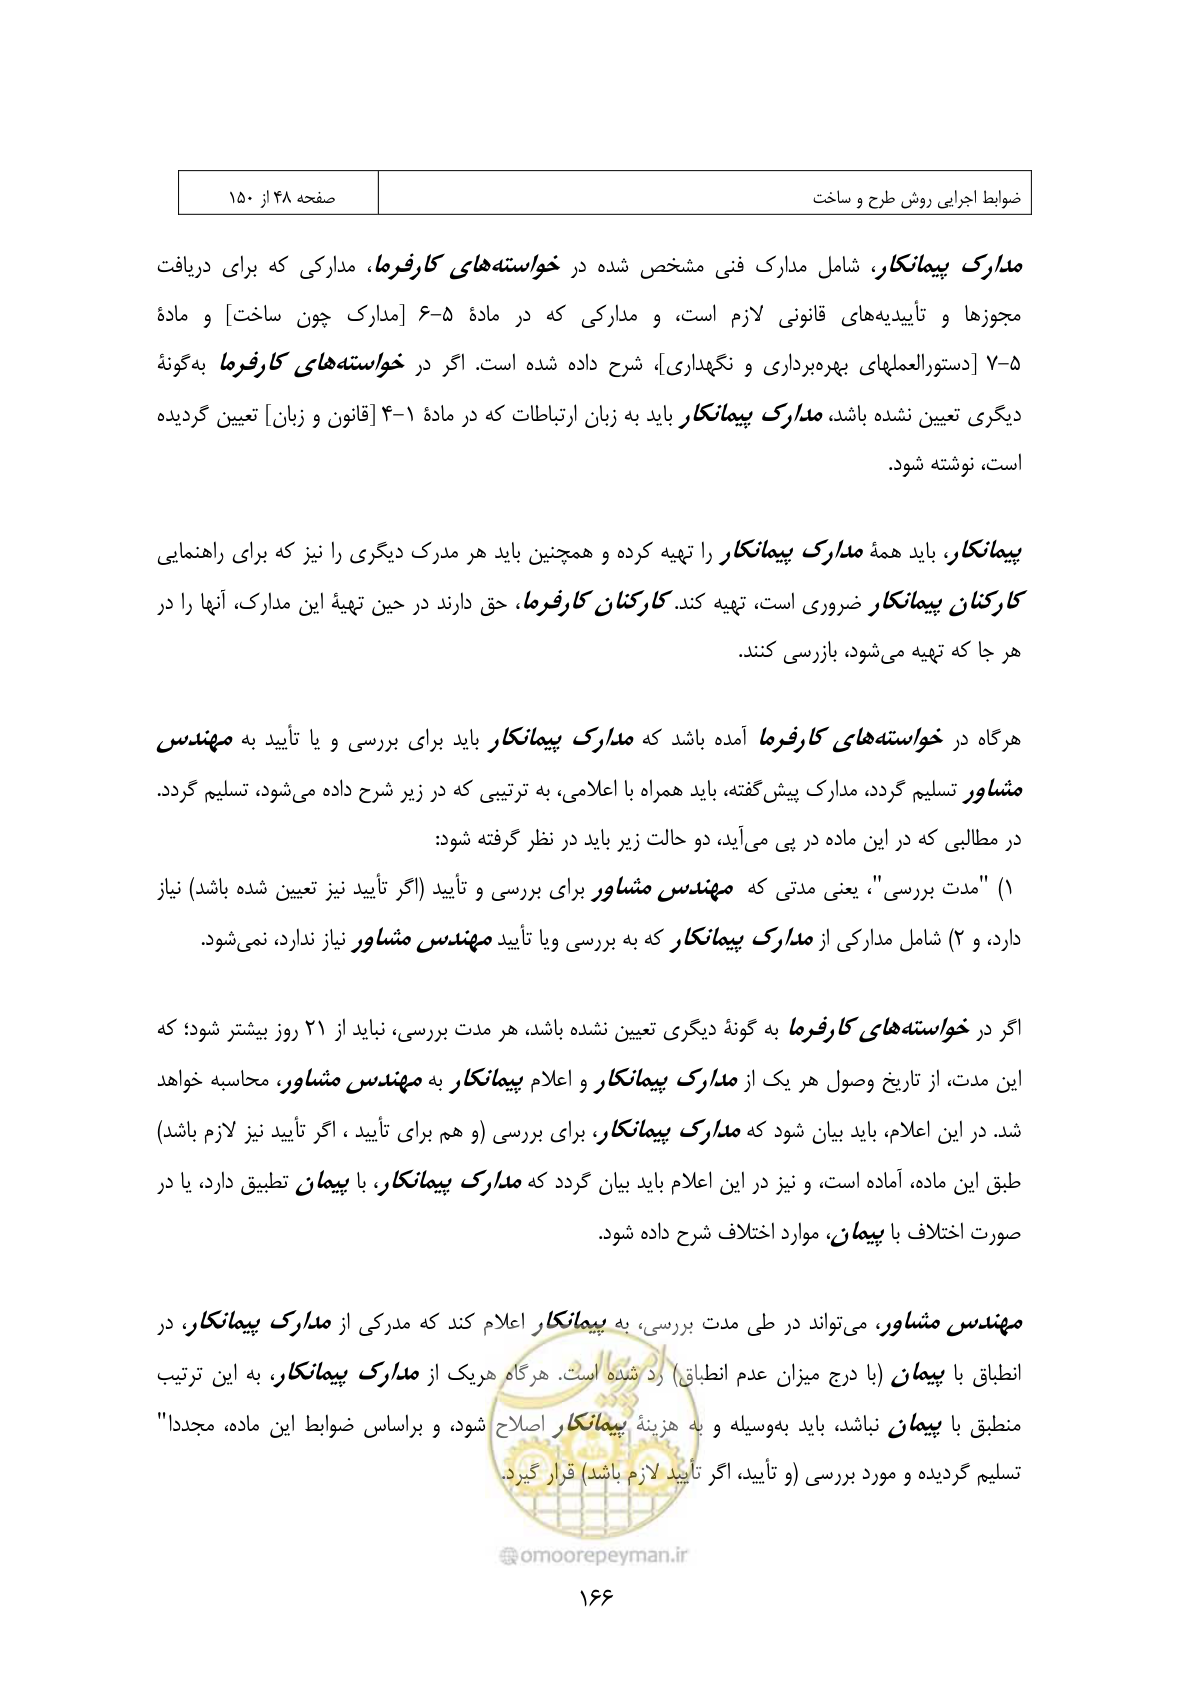 ضوابط اجرایی روش طرح و ساخت
صفحه ۴۸ از ۱۵۰
مدارک پیمانکار، شامل مدارک فنی مشخص شده در خواسته‌های کارفرما، مدارکی که برای دریافت
مجوزها و تأییدیه‌های قانونی لازم است، و مدارکی که در مادهٔ ۵-۶ [مدارک چون ساخت] و مادهٔ
۵-۷ [دستورالعملهای بهره‌برداری و نگهداری]، شرح داده شده است. اگر در خواسته‌های کارفرما به‌گونهٔ
دیگری تعیین نشده باشد، مدارک پیمانکار باید به زبان ارتباطات که در مادهٔ ۱-۴ [قانون و زبان] تعیین گردیده
است، نوشته شود.
پیمانکار، باید همهٔ مدارک پیمانکار را تهیه کرده و همچنین باید هر مدرک دیگری را نیز که برای راهنمایی
کارکنان پیمانکار ضروری است، تهیه کند. کارکنان کارفرما، حق دارند در حین تهیهٔ این مدارک، آنها را در
هر جا که تهیه می‌شود، بازرسی کنند.
هرگاه در خواسته‌های کارفرما آمده باشد که مدارک پیمانکار باید برای بررسی و یا تأیید به مهندس
مشاور تسلیم گردد، مدارک پیش‌گفته، باید همراه با اعلامی، به ترتیبی که در زیر شرح داده می‌شود، تسلیم گردد.
در مطالبی که در این ماده در پی می‌آید، دو حالت زیر باید در نظر گرفته شود:
۱) "مدت بررسی"، یعنی مدتی که مهندس مشاور برای بررسی و تأیید (اگر تأیید نیز تعیین شده باشد) نیاز
دارد، و ۲) شامل مدارکی از مدارک پیمانکار که به بررسی ویا تأیید مهندس مشاور نیاز ندارد، نمی‌شود.
اگر در خواسته‌های کارفرما به گونهٔ دیگری تعیین نشده باشد، هر مدت بررسی، نباید از ۲۱ روز بیشتر شود؛ که
این مدت، از تاریخ وصول هر یک از مدارک پیمانکار و اعلام پیمانکار به مهندس مشاور، محاسبه خواهد
شد. در این اعلام، باید بیان شود که مدارک پیمانکار، برای بررسی (و هم برای تأیید ، اگر تأیید نیز لازم باشد)
طبق این ماده، آماده است، و نیز در این اعلام باید بیان گردد که مدارک پیمانکار، با پیمان تطبیق دارد، یا در
صورت اختلاف با پیمان، موارد اختلاف شرح داده شود.
مهندس مشاور، می‌تواند در طی مدت بررسی، به پیمانکار اعلام کند که مدرکی از مدارک پیمانکار، در
انطباق با پیمان (با درج میزان عدم انطباق) رد شده است. هرگاه هریک از مدارک پیمانکار، به این ترتیب
منطبق با پیمان نباشد، باید به‌وسیله و به هزینهٔ پیمانکار اصلاح شود، و براساس ضوابط این ماده، مجددا"
تسلیم گردیده و مورد بررسی (و تأیید، اگر تأیید لازم باشد) قرار گیرد.
امور پیمان
@omoorepeyman.ir
۱۶۶